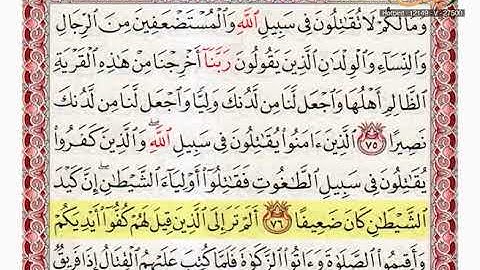 Hotbird - 12149 - V - 27500
وَمَا لَكُمْ لَا تُقَٰتِلُونَ فِى سَبِيلِ ٱللَّهِ وَٱلْمُسْتَضْعَفِينَ مِنَ ٱلرِّجَالِ
وَٱلنِّسَآءِ وَٱلْوِلْدَٰنِ ٱلَّذِينَ يَقُولُونَ رَبَّنَآ أَخْرِجْنَا مِنْ هَٰذِهِ ٱلْقَرْيَةِ
ٱلظَّالِمِ أَهْلُهَا وَٱجْعَل لَّنَا مِن لَّدُنكَ وَلِيًّا وَٱجْعَل لَّنَا مِن لَّدُنكَ
نَصِيرًا ٧٥ ٱلَّذِينَ ءَامَنُوا۟ يُقَٰتِلُونَ فِى سَبِيلِ ٱللَّهِ ۖ وَٱلَّذِينَ كَفَرُوا۟
يُقَٰتِلُونَ فِى سَبِيلِ ٱلطَّٰغُوتِ فَقَٰتِلُوٓا۟ أَوْلِيَآءَ ٱلشَّيْطَٰنِ ۖ إِنَّ كَيْدَ
ٱلشَّيْطَٰنِ كَانَ ضَعِيفًا ٧٦ أَلَمْ تَرَ إِلَى ٱلَّذِينَ قِيلَ لَهُمْ كُفُّوٓا۟ أَيْدِيَكُمْ
وَأَقِيمُوا۟ ٱلصَّلَوٰةَ وَءَاتُوا۟ ٱلزَّكَوٰةَ فَلَمَّا كُتِبَ عَلَيْهِمُ ٱلْقِتَالُ إِذَا فَرِيقٌ